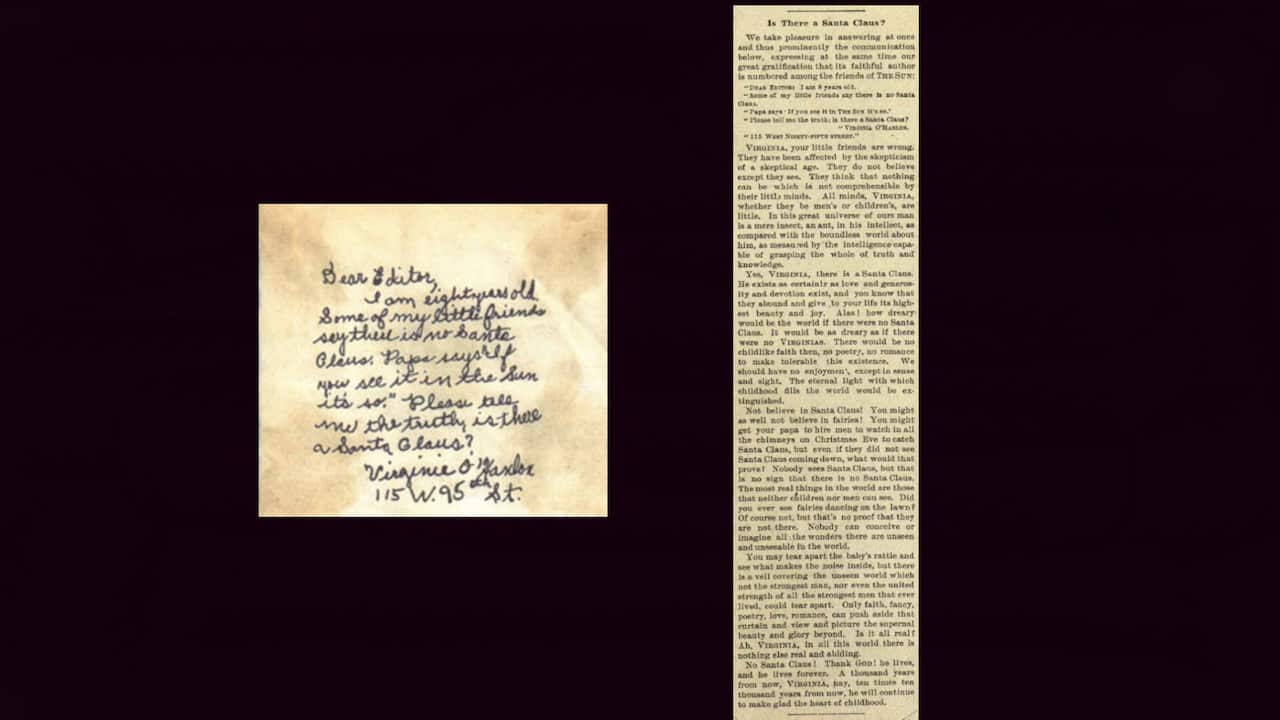 Dear Editor,
I am eight years old.
Some of my little friends
say there is no Santa
Claus. Papa says "If
you see it in the Sun
it's so." Please tell
me the truth, is there
a Santa Claus?
Virginia O'Hanlon
115 W. 95th St.
Is There a Santa Claus?
We take pleasure in answering at once
and thus prominently the communication
below, expressing at the same time our
great gratification that its faithful author
is numbered among the friends of THE SUN:
"DEAR EDITOR: I am 8 years old.
"Some of my little friends say there is no Santa
Claus.
"Papa says 'If you see it in THE SUN it's so.'
"Please tell me the truth; is there a Santa Claus?
"VIRGINIA O'HANLON.
"115 WEST NINETY-FIFTH STREET."
VIRGINIA, your little friends are wrong.
They have been affected by the skepticism
of a skeptical age. They do not believe
except they see. They think that nothing
can be which is not comprehensible by
their little minds. All minds, VIRGINIA,
whether they be men's or children's, are
little. In this great universe of ours man
is a mere insect, an ant, in his intellect, as
compared with the boundless world about
him, as measured by the intelligence capa-
ble of grasping the whole of truth and
knowledge.
Yes, VIRGINIA, there is a Santa Claus.
He exists as certainly as love and generos-
ity and devotion exist, and you know that
they abound and give to your life its high-
est beauty and joy. Alas! how dreary
would be the world if there were no Santa
Claus. It would be as dreary as if there
were no VIRGINIAS. There would be no
childlike faith then, no poetry, no romance
to make tolerable this existence. We
should have no enjoyment, except in sense
and sight. The eternal light with which
childhood fills the world would be ex-
tinguished.
Not believe in Santa Claus! You might
as well not believe in fairies! You might
get your papa to hire men to watch in all
the chimneys on Christmas Eve to catch
Santa Claus, but even if they did not see
Santa Claus coming down, what would that
prove? Nobody sees Santa Claus, but that
is no sign that there is no Santa Claus.
The most real things in the world are those
that neither children nor men can see. Did
you ever see fairies dancing on the lawn?
Of course not, but that's no proof that they
are not there. Nobody can conceive or
imagine all the wonders there are unseen
and unseeable in the world.
You may tear apart the baby's rattle and
see what makes the noise inside, but there
is a veil covering the unseen world which
not the strongest man, nor even the united
strength of all the strongest men that ever
lived, could tear apart. Only faith, fancy,
poetry, love, romance, can push aside that
curtain and view and picture the supernal
beauty and glory beyond. Is it all real?
Ah, VIRGINIA, in all this world there is
nothing else real and abiding.
No Santa Claus! Thank GOD! he lives,
and he lives forever. A thousand years
from now, VIRGINIA, nay, ten times ten
thousand years from now, he will continue
to make glad the heart of childhood.